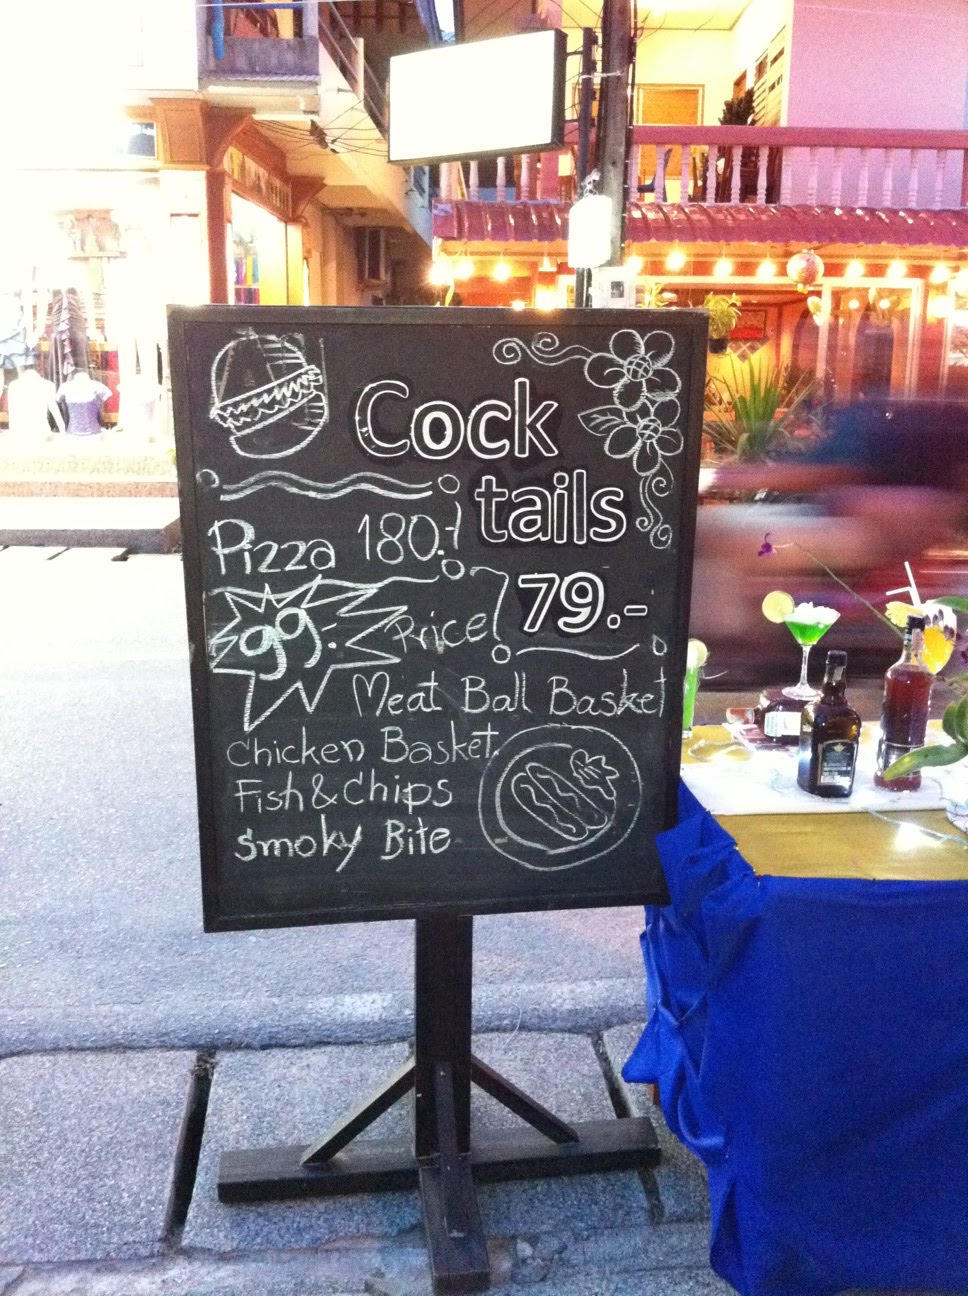 Cock
tails
79.-
Pizza 180.-
99.- Price
Meat Ball Basket
Chicken Basket
Fish & Chips
Smoky Bite